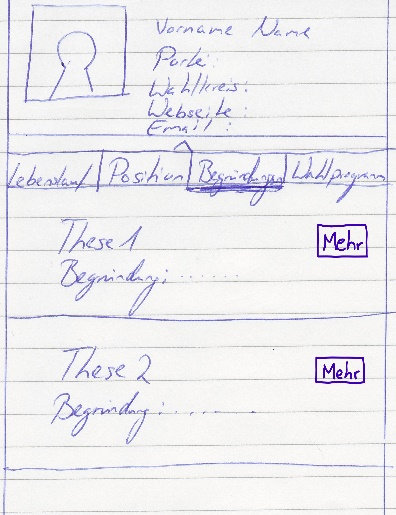 Vorname Name
Partei:
Wahlkreis:
Webseite:
Email:
Lebenslauf Position Begründungen Wahlprogramm
These 1 Mehr
Begründung: .......
These 2 Mehr
Begründung: .......